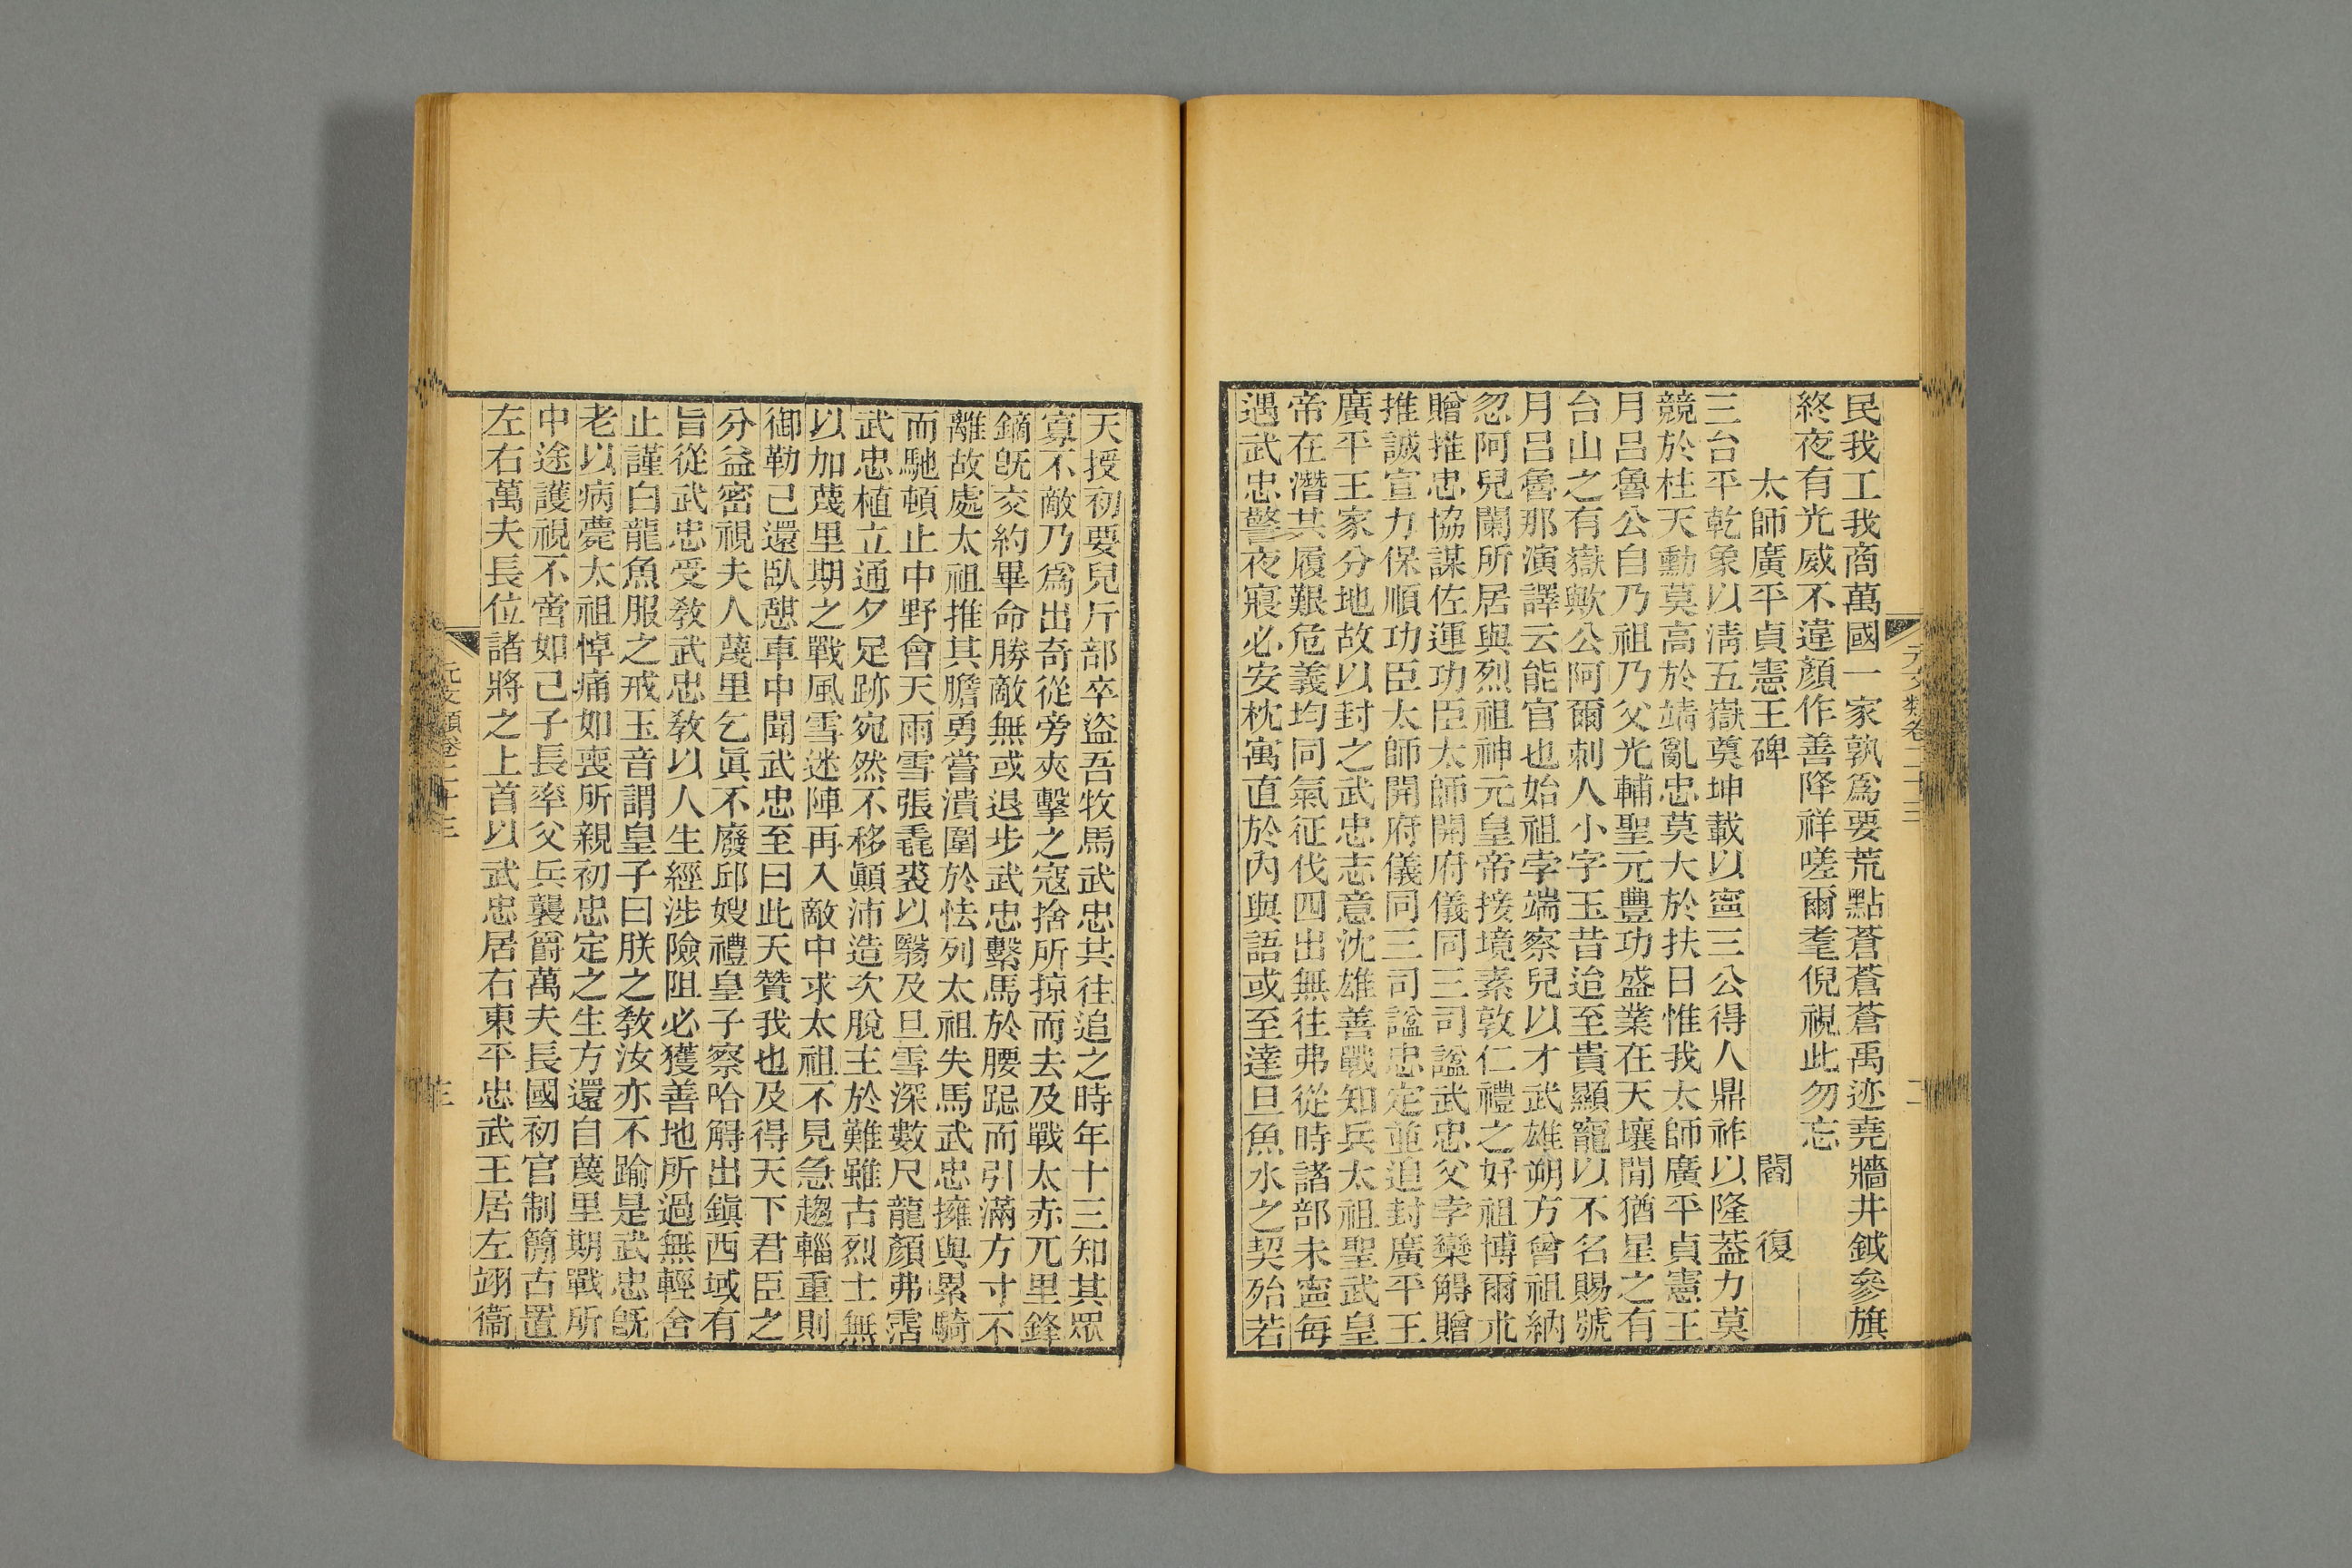 民我工我商萬國一家孰爲要荒點蒼蒼蒼禹迹堯牆井鉞參旗
終夜有光威不違顏作善降祥嗟爾耄倪視此勿忘
太師廣平貞憲王碑 閻復
三台平乾象以淸五嶽奠坤載以寧三公得人鼎祚以隆葢力莫
競於柱天勳莫高於靖亂忠莫大於扶日惟我太師廣平貞憲王
月呂魯公自乃祖乃父光輔聖元豐功盛業在天壤閒猶星之有
台山之有嶽歟公阿爾刺人小字玉昔迨至貴顯寵以不名賜號
月呂魯那演譯云能官也始祖孛端察兒以才武雄朔方曾祖納
忽阿兒闌所居與烈祖神元皇帝接境素敦仁禮之好祖博爾朮
贈推忠協謀佐運功臣太師開府儀同三司諡武忠父孛欒䚟贈
推誠宣力保順功臣太師開府儀同三司諡忠定並追封廣平王
廣平王家分地故以封之武忠志意沈雄善戰知兵太祖聖武皇
帝在潛其履艱危義均同氣征伐四出無往弗從時諸部未寧每
遇武忠警夜寢必安枕寓直於內與語或至達旦魚水之契殆若
元文類卷二十三
二
天授初要兒斤部卒盜吾牧馬武忠其往追之時年十三知其眾
寡不敵乃爲出奇從旁夾擊之寇捨所掠而去及戰太赤兀里鋒
鏑旣交約畢命勝敵無或退步武忠繫馬於腰跽而引滿方寸不
離故處太祖推其膽勇嘗潰圍於怯列太祖失馬武忠擁與累騎
而馳頓止中野會天雨雪張毳裘以翳及旦雪深數尺龍顏弗霑
武忠植立通夕足跡宛然不移顚沛造次脫主於難雖古烈士無
以加蔑里期之戰風雪迷陣再入敵中求太祖不見急趨輜重則
御勒已還臥憩車中聞武忠至曰此天贊我也及得天下君臣之
分益密視夫人蔑里乞眞不廢邱嫂禮皇子察哈䚟出鎭西域有
旨從武忠受敎武忠敎以人生經涉險阻必獲善地所過無輕舍
止謹白龍魚服之戒玉音謂皇子曰朕之敎汝亦不踰是武忠旣
老以病薨太祖悼痛如喪所親初忠定之生方還自蔑里期戰所
中途護視不啻如己子長率父兵襲爵萬夫長國初官制簡古置
左右萬夫長位諸將之上首以武忠居右東平忠武王居左翊衞
元文類卷二十三
三